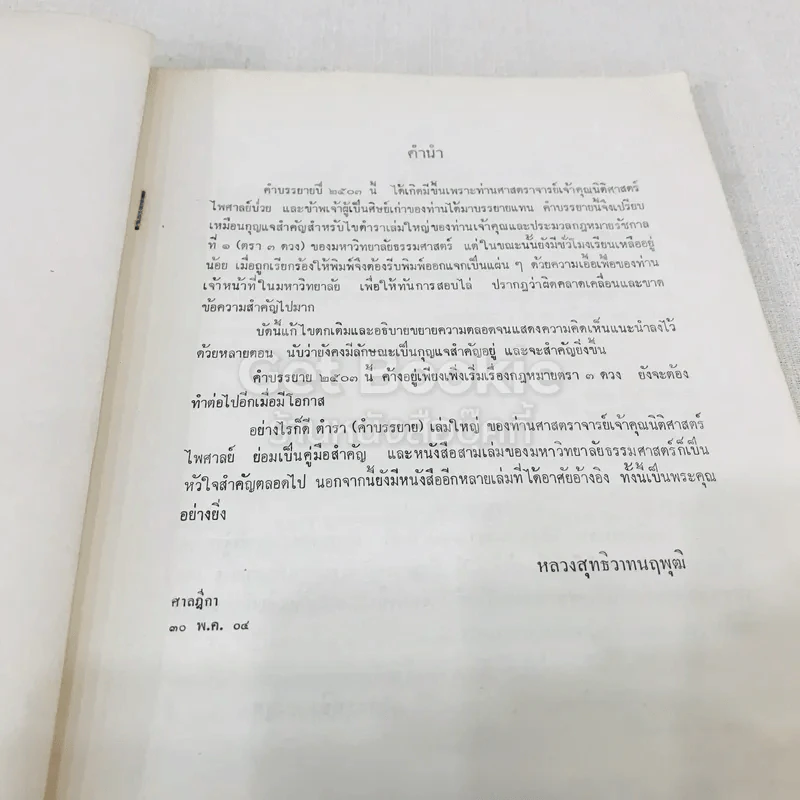 คำนำ
คำบรรยายปี ๒๕๐๓ นี้ ได้เกิดมีขึ้นเพราะท่านศาสตราจารย์เจ้าคุณนิติศาสตร์
ไพศาลย์ป่วย และข้าพเจ้าผู้เป็นศิษย์เก่าของท่านได้มาบรรยายแทน คำบรรยายนี้จึงเปรียบ
เหมือนกุญแจสำคัญสำหรับไขตำราเล่มใหญ่ของท่านเจ้าคุณและประมวลกฎหมายรัชกาล
ที่ ๑ (ตรา ๓ ดวง) ของมหาวิทยาลัยธรรมศาสตร์ แต่ในขณะนั้นยังมีชั่วโมงเรียนเหลืออยู่
น้อย เมื่อถูกเรียกร้องให้พิมพ์จึงต้องรีบพิมพ์ออกแจกเป็นแผ่น ๆ ด้วยความเอื้อเฟื้อของท่าน
เจ้าหน้าที่ในมหาวิทยาลัย เพื่อให้ทันการสอบไล่ ปรากฏว่าผิดคลาดเคลื่อนและขาด
ข้อความสำคัญไปมาก
บัดนี้แก้ไขตกเติมและอธิบายขยายความตลอดจนแสดงความคิดเห็นแนะนำลงไว้
ด้วยหลายตอน นับว่ายังคงมีลักษณะเป็นกุญแจสำคัญอยู่ และจะสำคัญยิ่งขึ้น
คำบรรยาย ๒๕๐๓ นี้ ค้างอยู่เพียงเพิ่งเริ่มเรื่องกฎหมายตรา ๓ ดวง ยังจะต้อง
ทำต่อไปอีกเมื่อมีโอกาส
อย่างไรก็ดี ตำรา (คำบรรยาย) เล่มใหญ่ ของท่านศาสตราจารย์เจ้าคุณนิติศาสตร์
ไพศาลย์ ย่อมเป็นคู่มือสำคัญ และหนังสือสามเล่มของมหาวิทยาลัยธรรมศาสตร์ก็เป็น
หัวใจสำคัญตลอดไป นอกจากนี้ยังมีหนังสืออีกหลายเล่มที่ได้อาศัยอ้างอิง ทั้งนี้เป็นพระคุณ
อย่างยิ่ง
หลวงสุทธิวาทนฤพุฒิ
ศาลฎีกา
๓๐ พ.ค. ๐๔
Get Bookie
ร้านหนังสือบุ๊คกี้